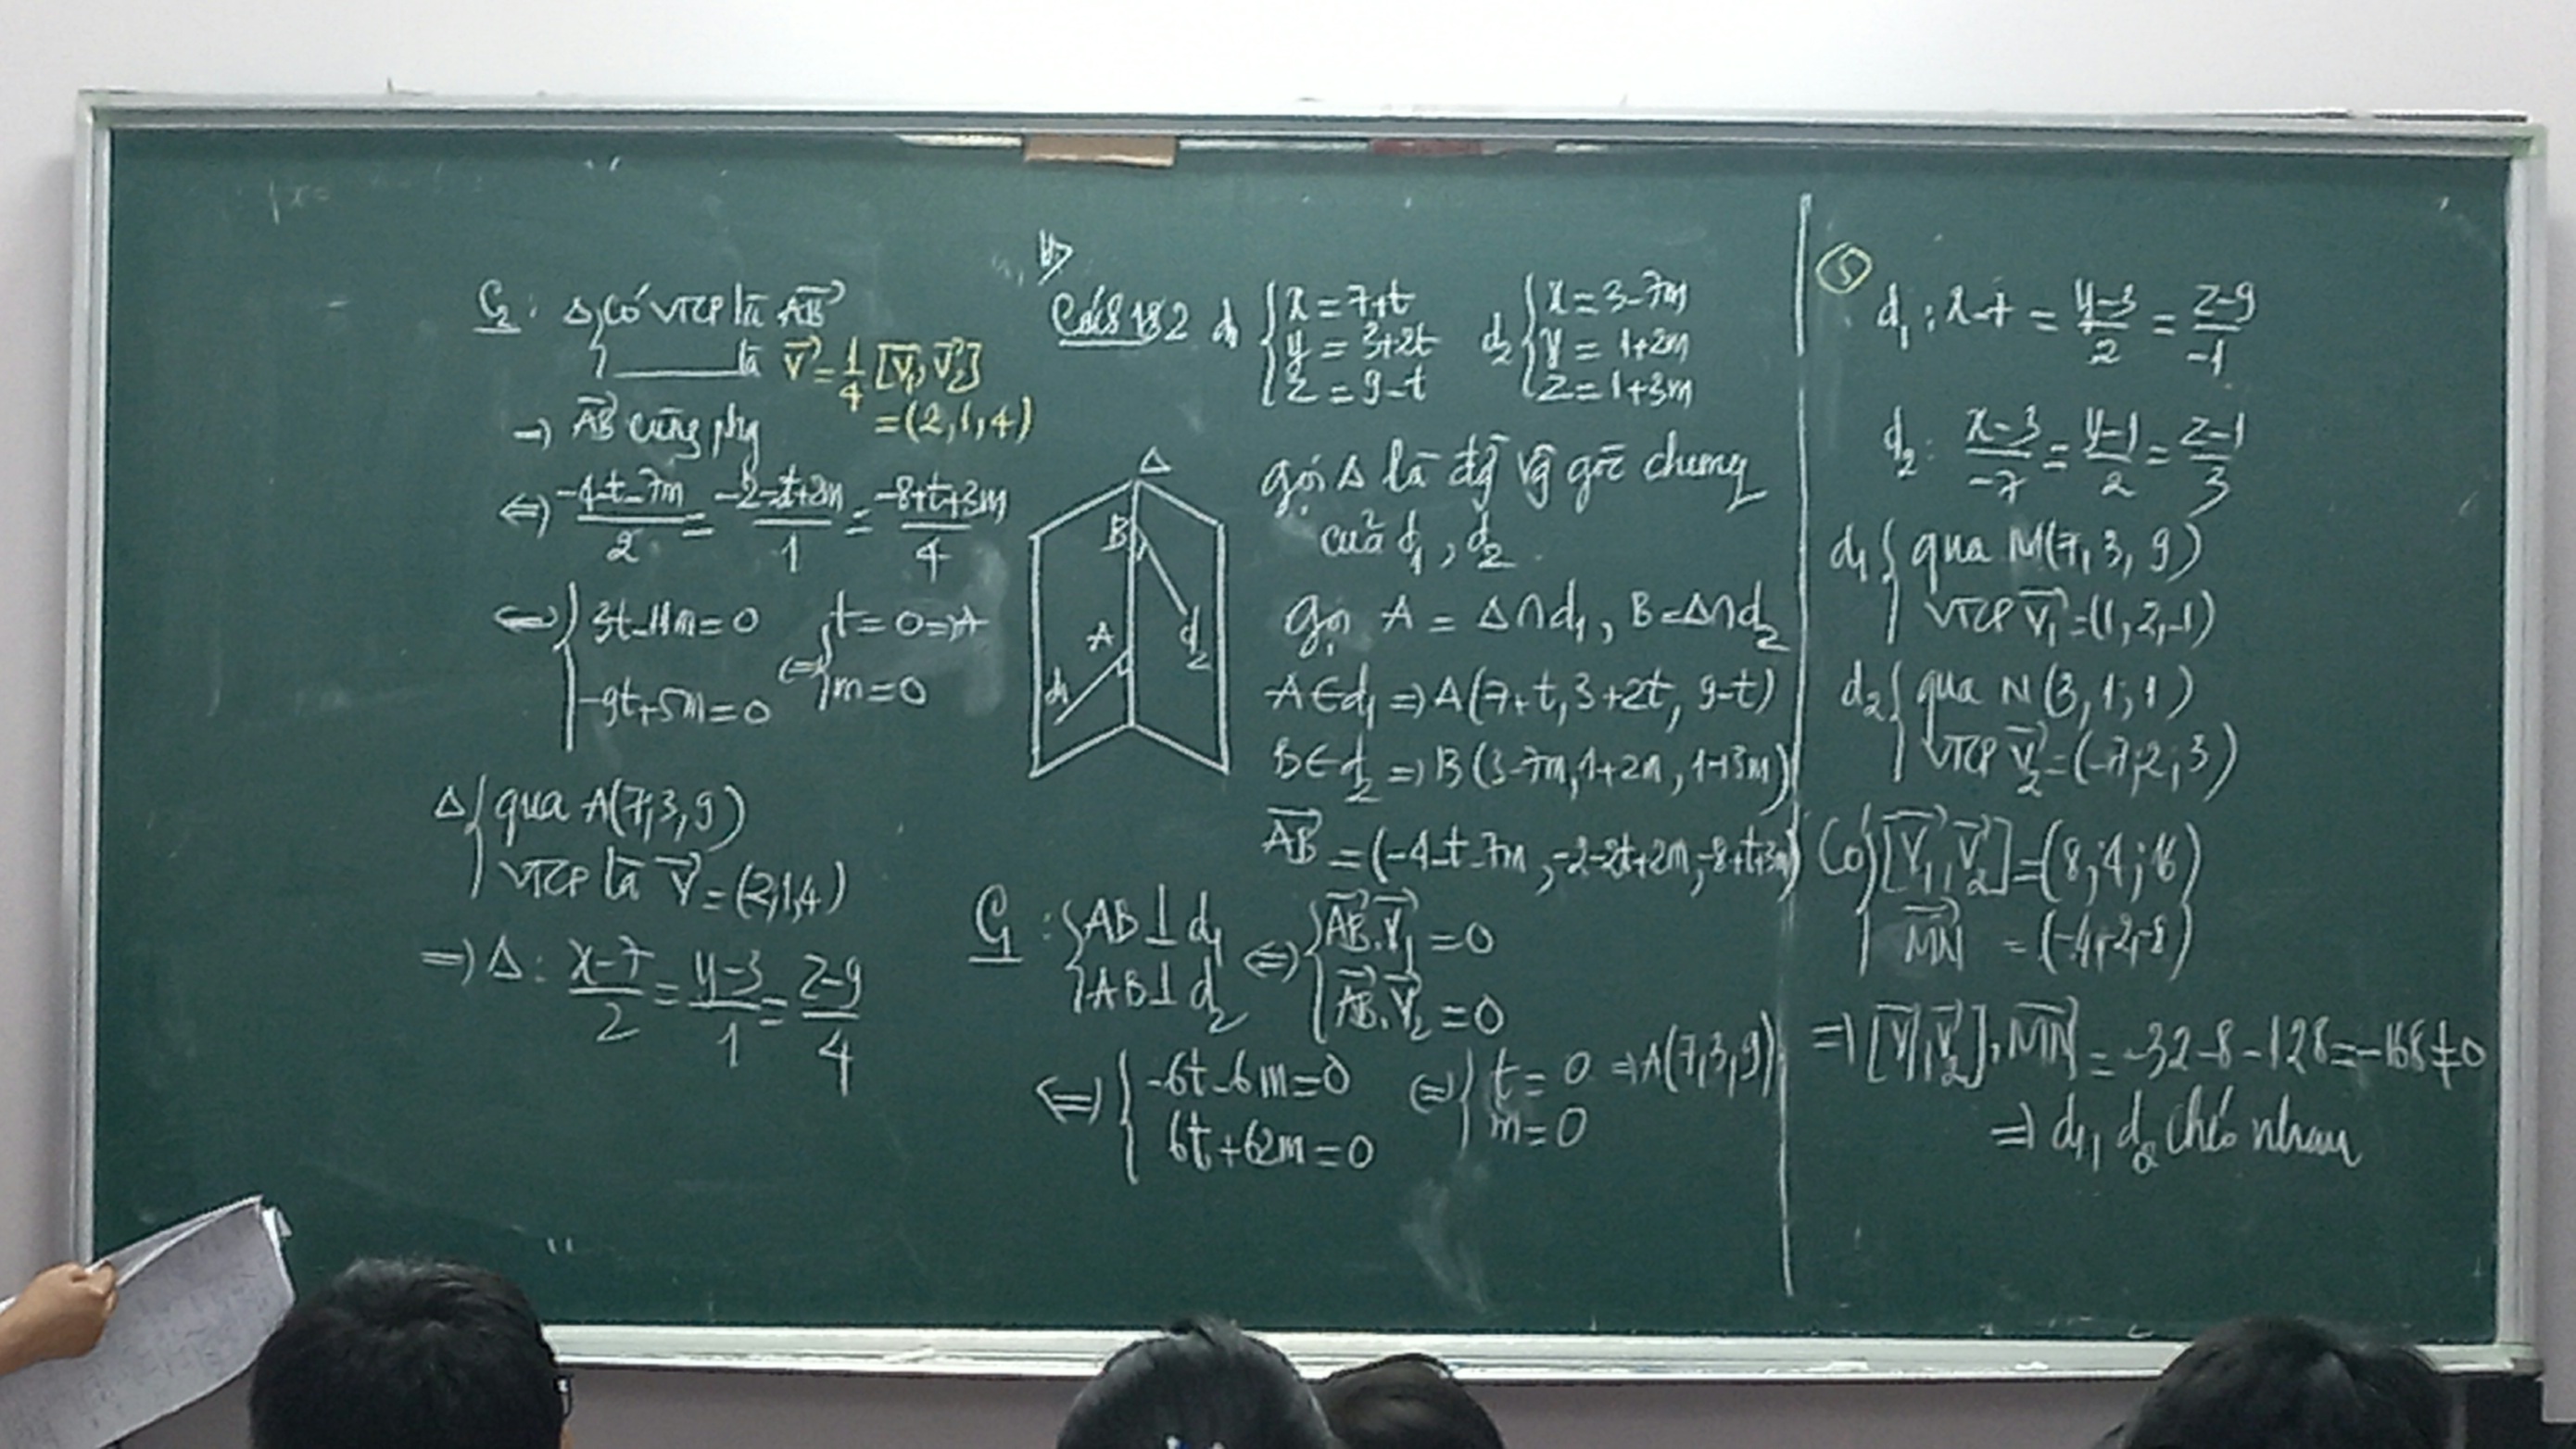 C₂: Δ { có VTCP là \overrightarrow{AB}
____ là \vec{V} = 1/4 [\vec{V₁}, \vec{V₂}]
= (2, 1, 4)
→ \overrightarrow{AB} cùng phg
⇔ (-4-t-7m)/2 = (-2-2t+2m)/1 = (-8+t+3m)/4
⇔ { 3t-11m = 0
-9t+5m = 0
⇔ { t = 0 ⇒ A
m = 0
Δ { qua A(7,3,9)
VTCP là \vec{V} = (2,1,4)
⇒ Δ: (x-7)/2 = (y-3)/1 = (z-9)/4
b)
Cách 1&2 d₁ { x = 7+t
y = 3+2t
z = 9-t
d₂ { x = 3-7m
y = 1+2m
z = 1+3m
Δ
B
A
d₁
d₂
gọi Δ là đg vg góc chung
của d₁, d₂
Gọi A = Δ∩d₁, B = Δ∩d₂
A ∈ d₁ ⇒ A(7+t, 3+2t, 9-t)
B ∈ d₂ ⇒ B(3-7m, 1+2m, 1+3m)
\overrightarrow{AB} = (-4-t-7m, -2-2t+2m, -8+t+3m)
C₁: { AB ⊥ d₁
AB ⊥ d₂
⇔ { \overrightarrow{AB}.\vec{V₁} = 0
\overrightarrow{AB}.\vec{V₂} = 0
⇔ { -6t-6m = 0
6t+62m = 0
⇔ { t = 0 ⇒ A(7,3,9)
m = 0
5
d₁: x-7 = (y-3)/2 = (z-9)/-1
d₂: (x-3)/-7 = (y-1)/2 = (z-1)/3
d₁ { qua M(7, 3, 9)
VTCP \vec{V₁} = (1, 2, -1)
d₂ { qua N(3, 1, 1)
VTCP \vec{V₂} = (-7; 2; 3)
Có { [\vec{V₁}, \vec{V₂}] = (8; 4; 16)
\overrightarrow{MN} = (-4, -2, -8)
⇒ [\vec{V₁}, \vec{V₂}].\overrightarrow{MN} = -32-8-128 = -168 ≠ 0
⇒ d₁, d₂ chéo nhau